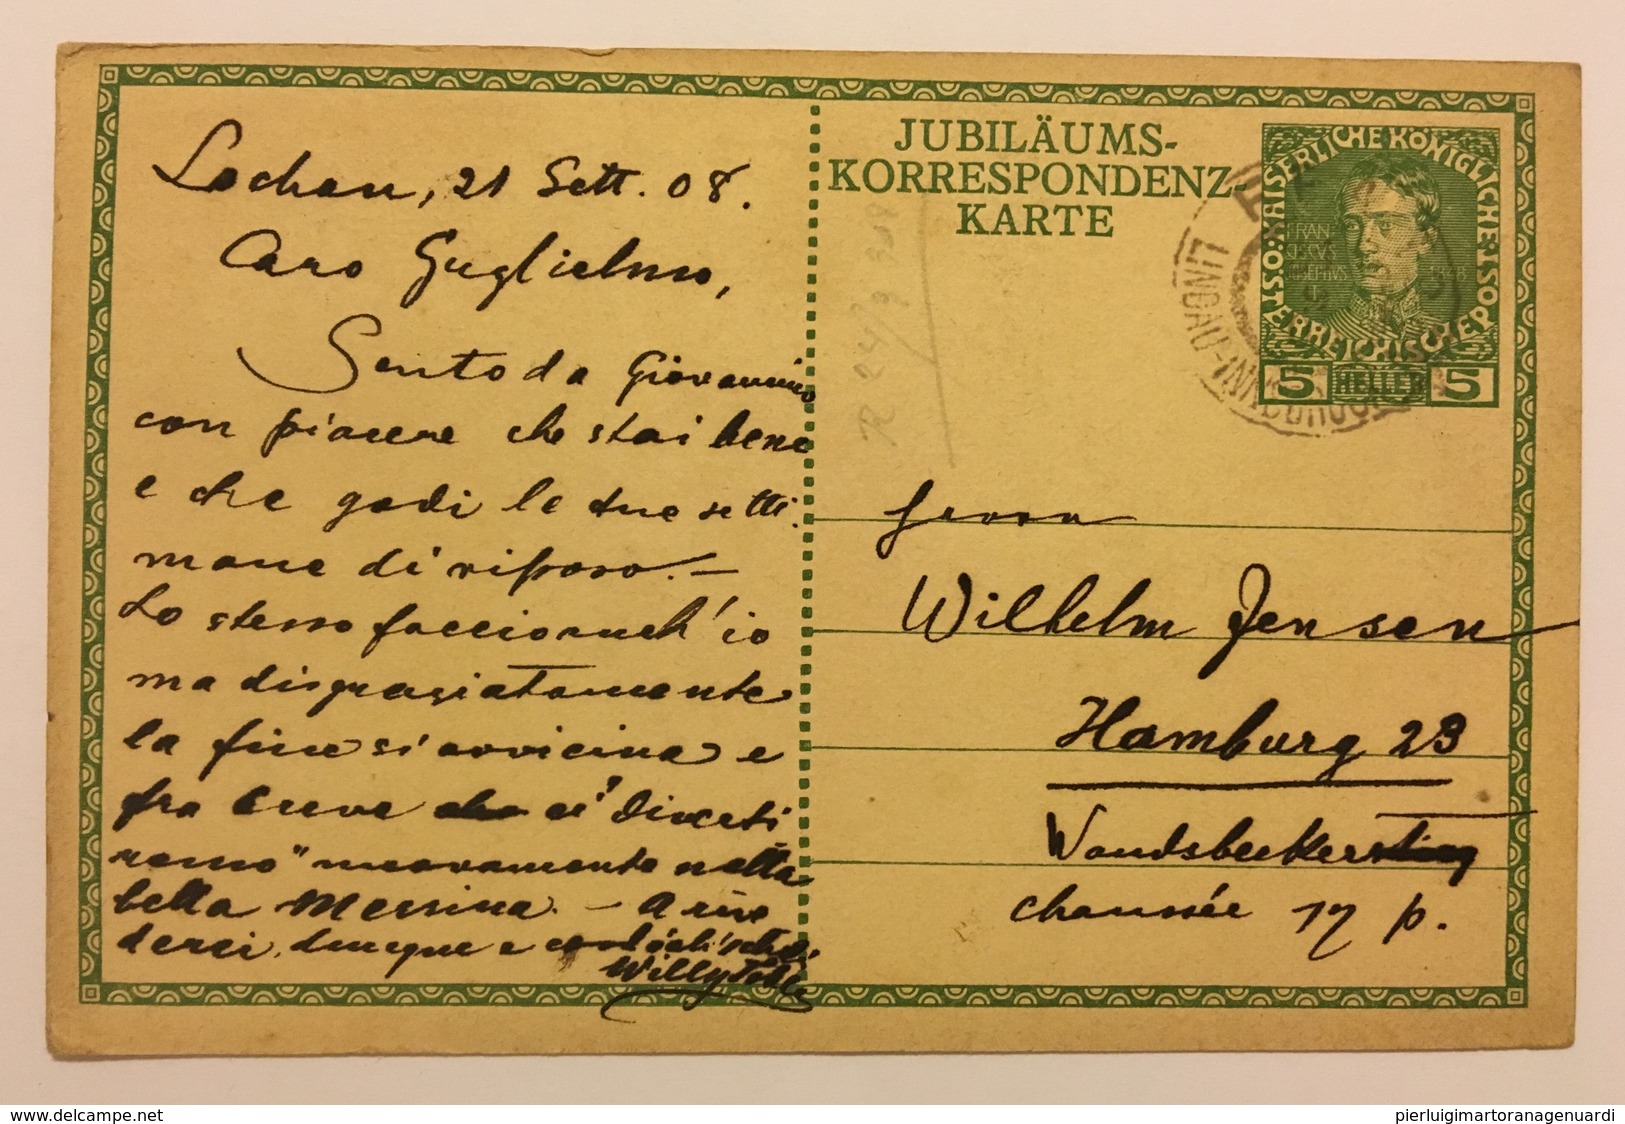 Lochau, 21 Sett. 08.
Caro Guglielmo,
Sento da Giovannino
con piacere che stai bene
e che godi le due setti-
mane di riposo. –
Lo stesso faccio anch'io
ma disgraziatamente
la fine si avvicina e
fra breve ci "diverti
remo" nuovamente nella
bella Messina. – A rive
derci, dunque e
Willy
JUBILÄUMS-
KORRESPONDENZ-
KARTE
KAISERLICHE KÖNIGLICHE ÖSTERREICHISCHE POST
FRAN
CISCVS
IOSEPHVS
I
1848
5 HELLER 5
LINDAU-INNSBRUCK
R 24/9 908
Herrn
Wilhelm Jensen
Hamburg 23
Wandsbecker
chaussée 17 p.
www.delcampe.net
pierluigimartoranagenuardi